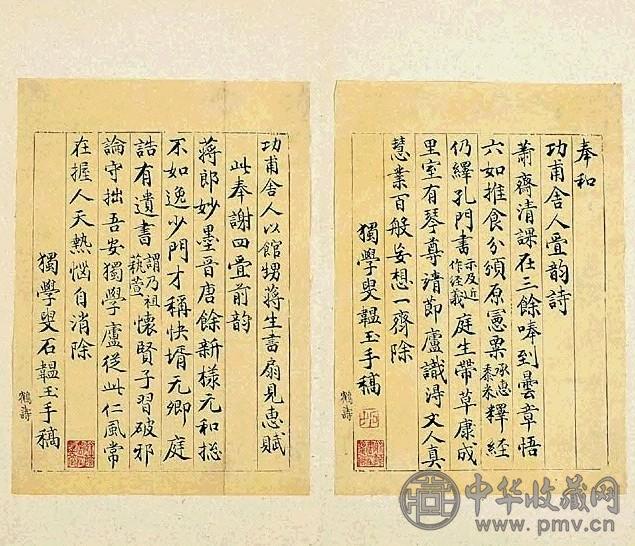 奉和
功甫舍人疊韵詩
蕭齋清課在三餘唪到曇章悟
六如推食分頒原憲粟承惠黍米釋經
仍繹孔門書示及近作經義庭生帶草康成
里室有琴尊靖節廬識得文人真
慧業百般妄想一齊除
獨學叟韞玉手稿
鶴詩
功甫舍人以館甥蔣生書扇見惠賦
此奉謝四疊前韵
蔣郎妙墨晉唐餘新樣元和揔
不如逸少門才稱快壻元卿庭
誥有遺書謂乃祖萱懷賢子習破邪
論守拙吾安獨學廬從此仁風常
在握人天熱惱自消除
獨學叟石韞玉手稿
鶴詩
中华收藏网
www.pmv.cn